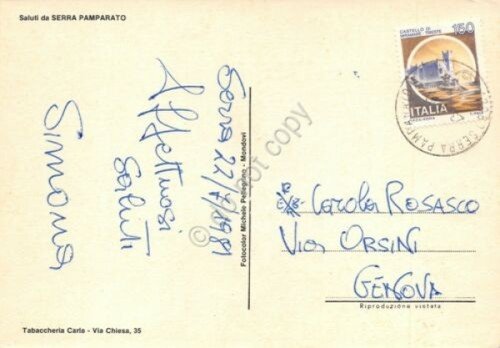 Saluti da SERRA PAMPARATO
Serra 22/7/1981
Affettuosi
Saluti
Simona
Fotocolor Michele Pellegrino - Mondovì
Tabaccheria Carla - Via Chiesa, 35
CASTELLO DI
MIRAMARE TRIESTE
150
ITALIA
SERRA PAMPAR
Rosasco
Via Orsini
GENOVA
Riproduzione vietata
do not copy